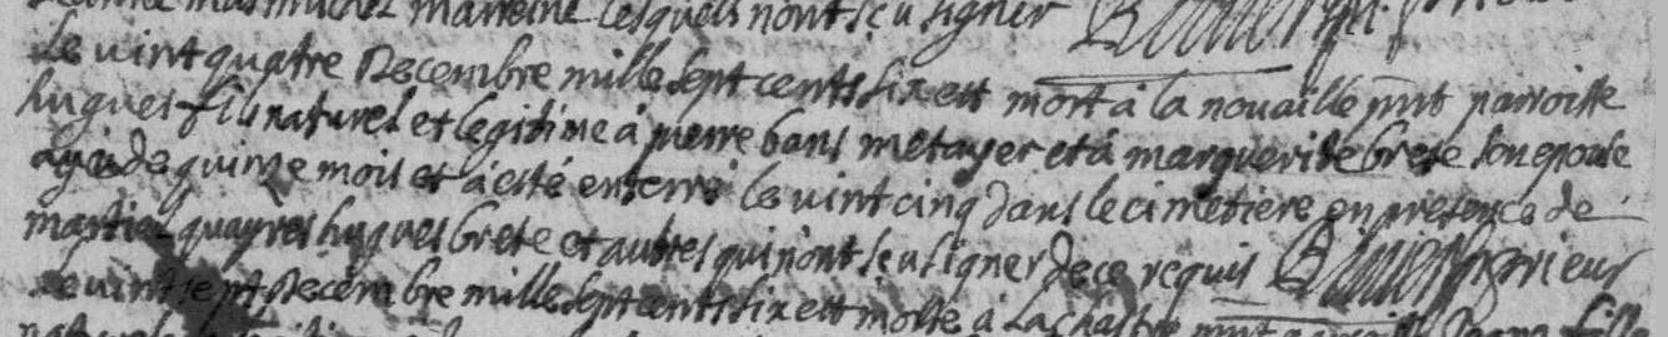 marreine lesquels nont sçu signer
le vint quatre Decembre mille sept cents six est mort à la nouaille pnt parroisse
hugues fils naturel et legitime à pierre bans metayer et à marguerite brete son epouse
agé de quinze mois et à esté enterré le vint cinq dans le cimetiere en presence de
martial quayres hugues brete et autres qui nont sçu signer de ce requis prieur
le vint sept Decembre mille sept cents six est morte à la pnt fille